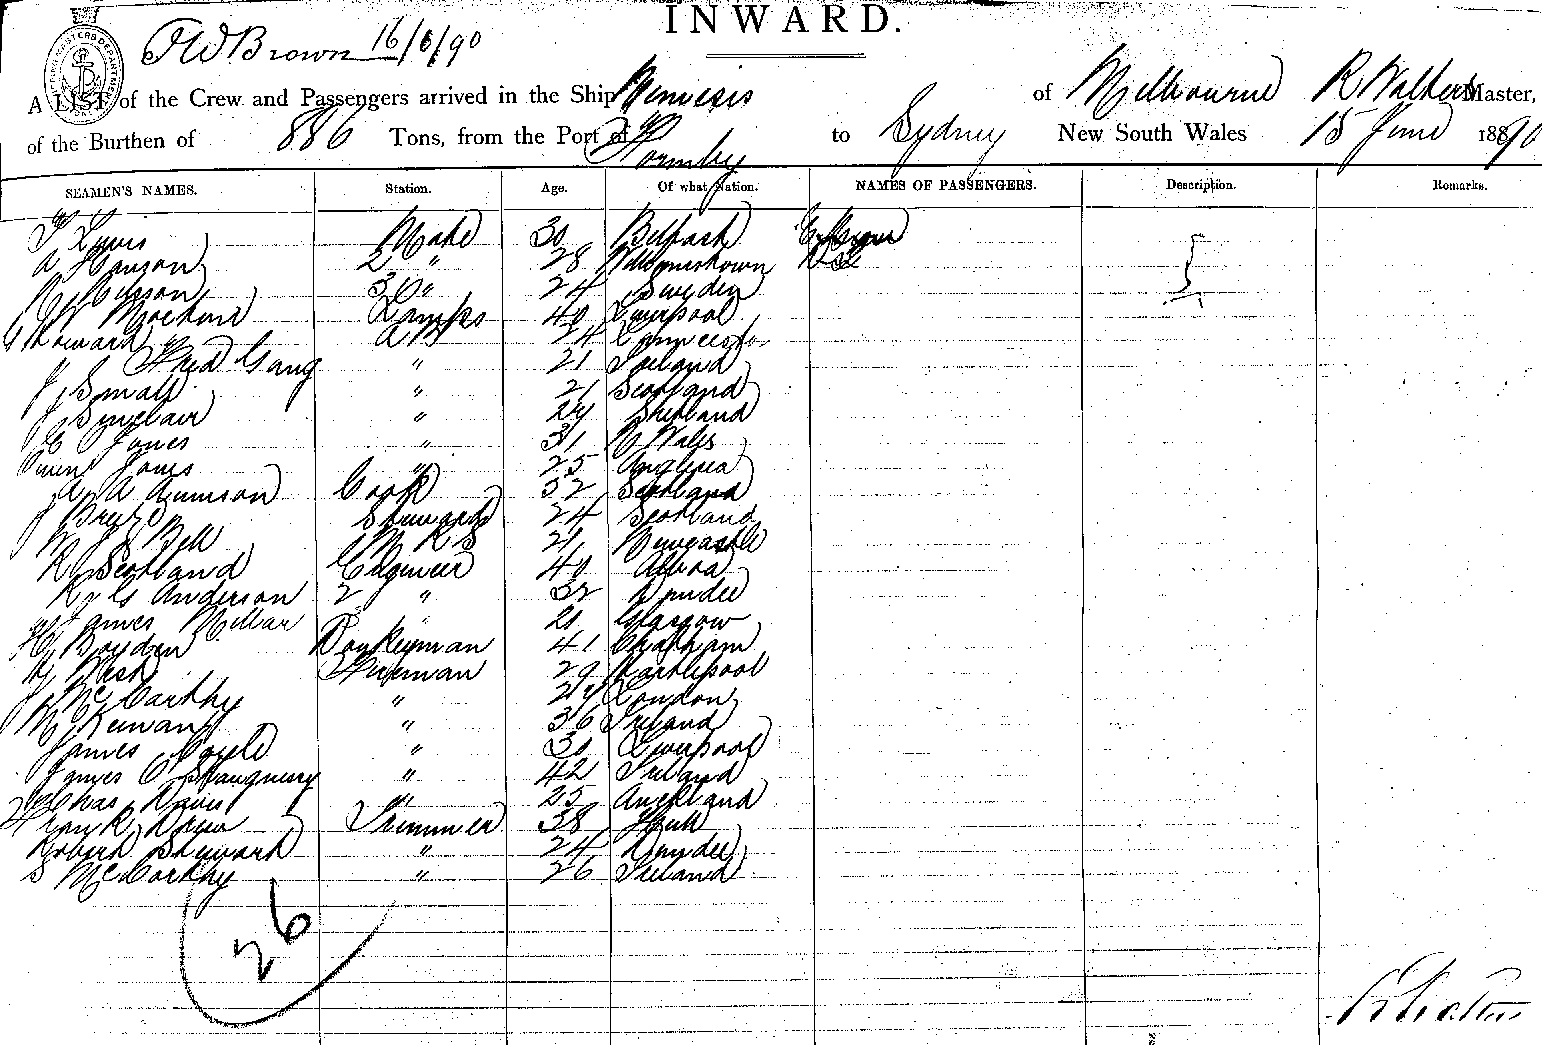 INWARD.
J W Brown 16/6/90
A LIST of the Crew and Passengers arrived in the Ship Nemesis of Melbourne R Walkers Master,
of the Burthen of 886 Tons, from the Port of Formby to Sydney New South Wales 15 June 1890
SEAMEN'S NAMES. Station. Age. Of what Nation. NAMES OF PASSENGERS. Description. Remarks.
T Lewis Mate 30 Belfast
A Hanson 2 " 28 Williamstown
Nilsson 3 " 24 Sweden
Lamps 40 Liverpool
Howard AB 24 Launceston
J Fred Gang " 21 Ireland
J Small " 21 Scotland
J Sinclair " 24 Shetland
E Jones " 31 N Wales
Owen Jones " 25 Anglesea
A A Gunnson Cook 52 Scotland
J Steward 24 Scotland
W J Bell M R S 21 Newcastle
R Scotland Engineer 40 Alloa
R G Anderson 2 " 32 Dundee
James Millar " 21 Glasgow
H Boyden Donkeyman 41 Chatham
H West Fireman 29 Hartlepool
J McCarthy " 29 London
M Keenan " 36 Ireland
James Coyle " 30 Liverpool
James O Shaugnessy " 42 Ireland
Chas Davis " 25 Auckland
Frank Drew Trimmer 38 Hull
Robert Stewart " 24 Dundee
S McCarthy " 26 Ireland
26